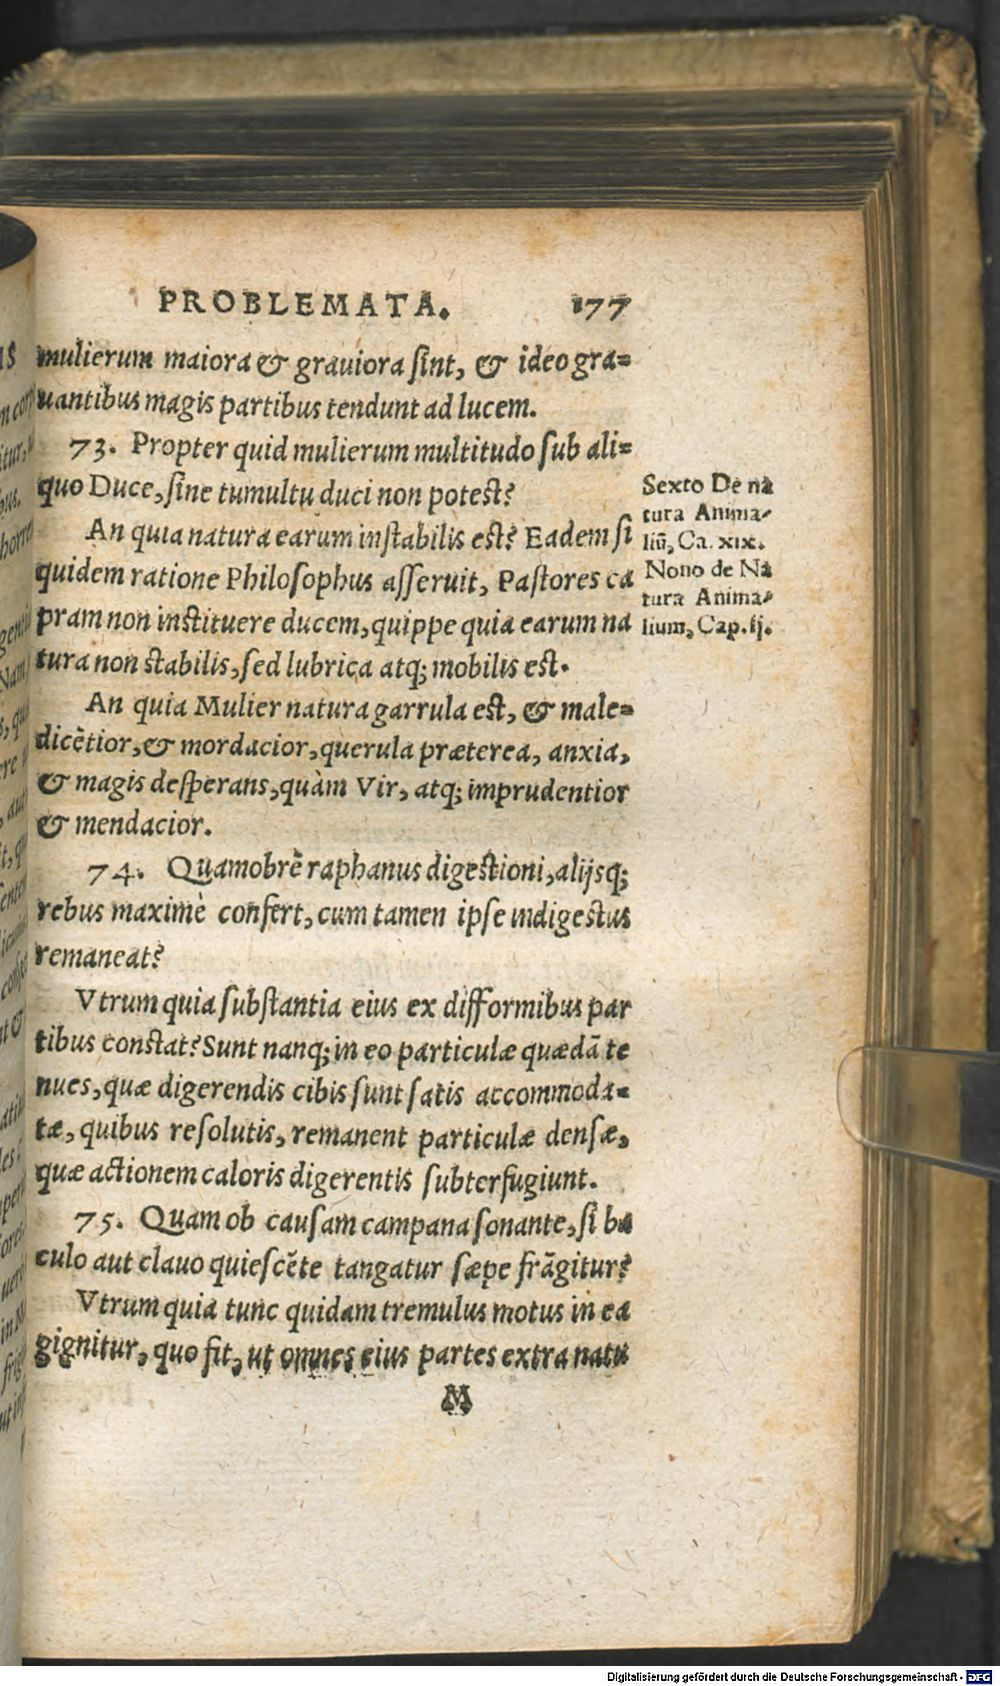 PROBLEMATA. 177
mulierum maiora & grauiora ſint, & ideo gra=
uantibus magis partibus tendunt ad lucem.
73. Propter quid mulierum multitudo ſub ali=
quo Duce, ſine tumultu duci non poteſt?
An quia natura earum inſtabilis eſt? Eadem ſi
quidem ratione Philoſophus aſſeruit, Paſtores ca
pram non inſtituere ducem, quippe quia earum na
tura non ſtabilis, ſed lubrica atq; mobilis eſt.
An quia Mulier natura garrula eſt, & male=
dicẽtior, & mordacior, querula præterea, anxia,
& magis deſperans, quàm Vir, atq; imprudentior
& mendacior.
Sexto De na
tura Anima=
liũ, Ca. xix.
Nono de Na
tura Anima=
lium, Cap. ij.
74. Quamobrẽ raphanus digeſtioni, alijsq;
rebus maximè confert, cum tamen ipſe indigeſtus
remaneat?
Vtrum quia ſubſtantia eius ex difformibus par
tibus conſtat? Sunt nanq; in eo particulæ quædã te
nues, quæ digerendis cibis ſunt ſatis accommoda=
tæ, quibus reſolutis, remanent particulæ denſæ,
quæ actionem caloris digerentis ſubterfugiunt.
75. Quam ob cauſam campana ſonante, ſi ba
culo aut clauo quieſcẽte tangatur ſæpe frãgitur?
Vtrum quia tunc quidam tremulus motus in ea
gignitur, quo fit, ut omnes eius partes extra natu
M
Digitalisierung gefördert durch die Deutsche Forschungsgemeinschaft - DFG